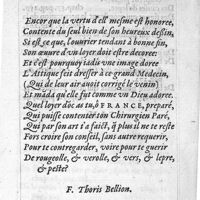 Encor que la vertu d'ell' mesme est honoree,
Contente du seul bien de son heureux destin,
Si est ce que, l'ouurier tendant à bonne fin,
Son œuure d'un loyer doit estre decoree:
Et c'est pourquoy iadis une image doree
L'Attique feit dresser à ce grand Medecin,
(Qui de leur air auoit corrigé le venin)
Et mãda qu'elle fut comme un Dieu adoree.
Quel loyer dõc as tu, ô FRANCE, preparé,
Qui puisse contenter ton Chirurgien Paré,
Qui par son art t'a faict, q̃ plus il ne te reste
Fors croire son conseil, sans autre requerir,
Pour te contregarder, voire pour te guerir
De rougeolle, & verolle, & vers, & lepre,
& peste?
F. Thoris Bellion.